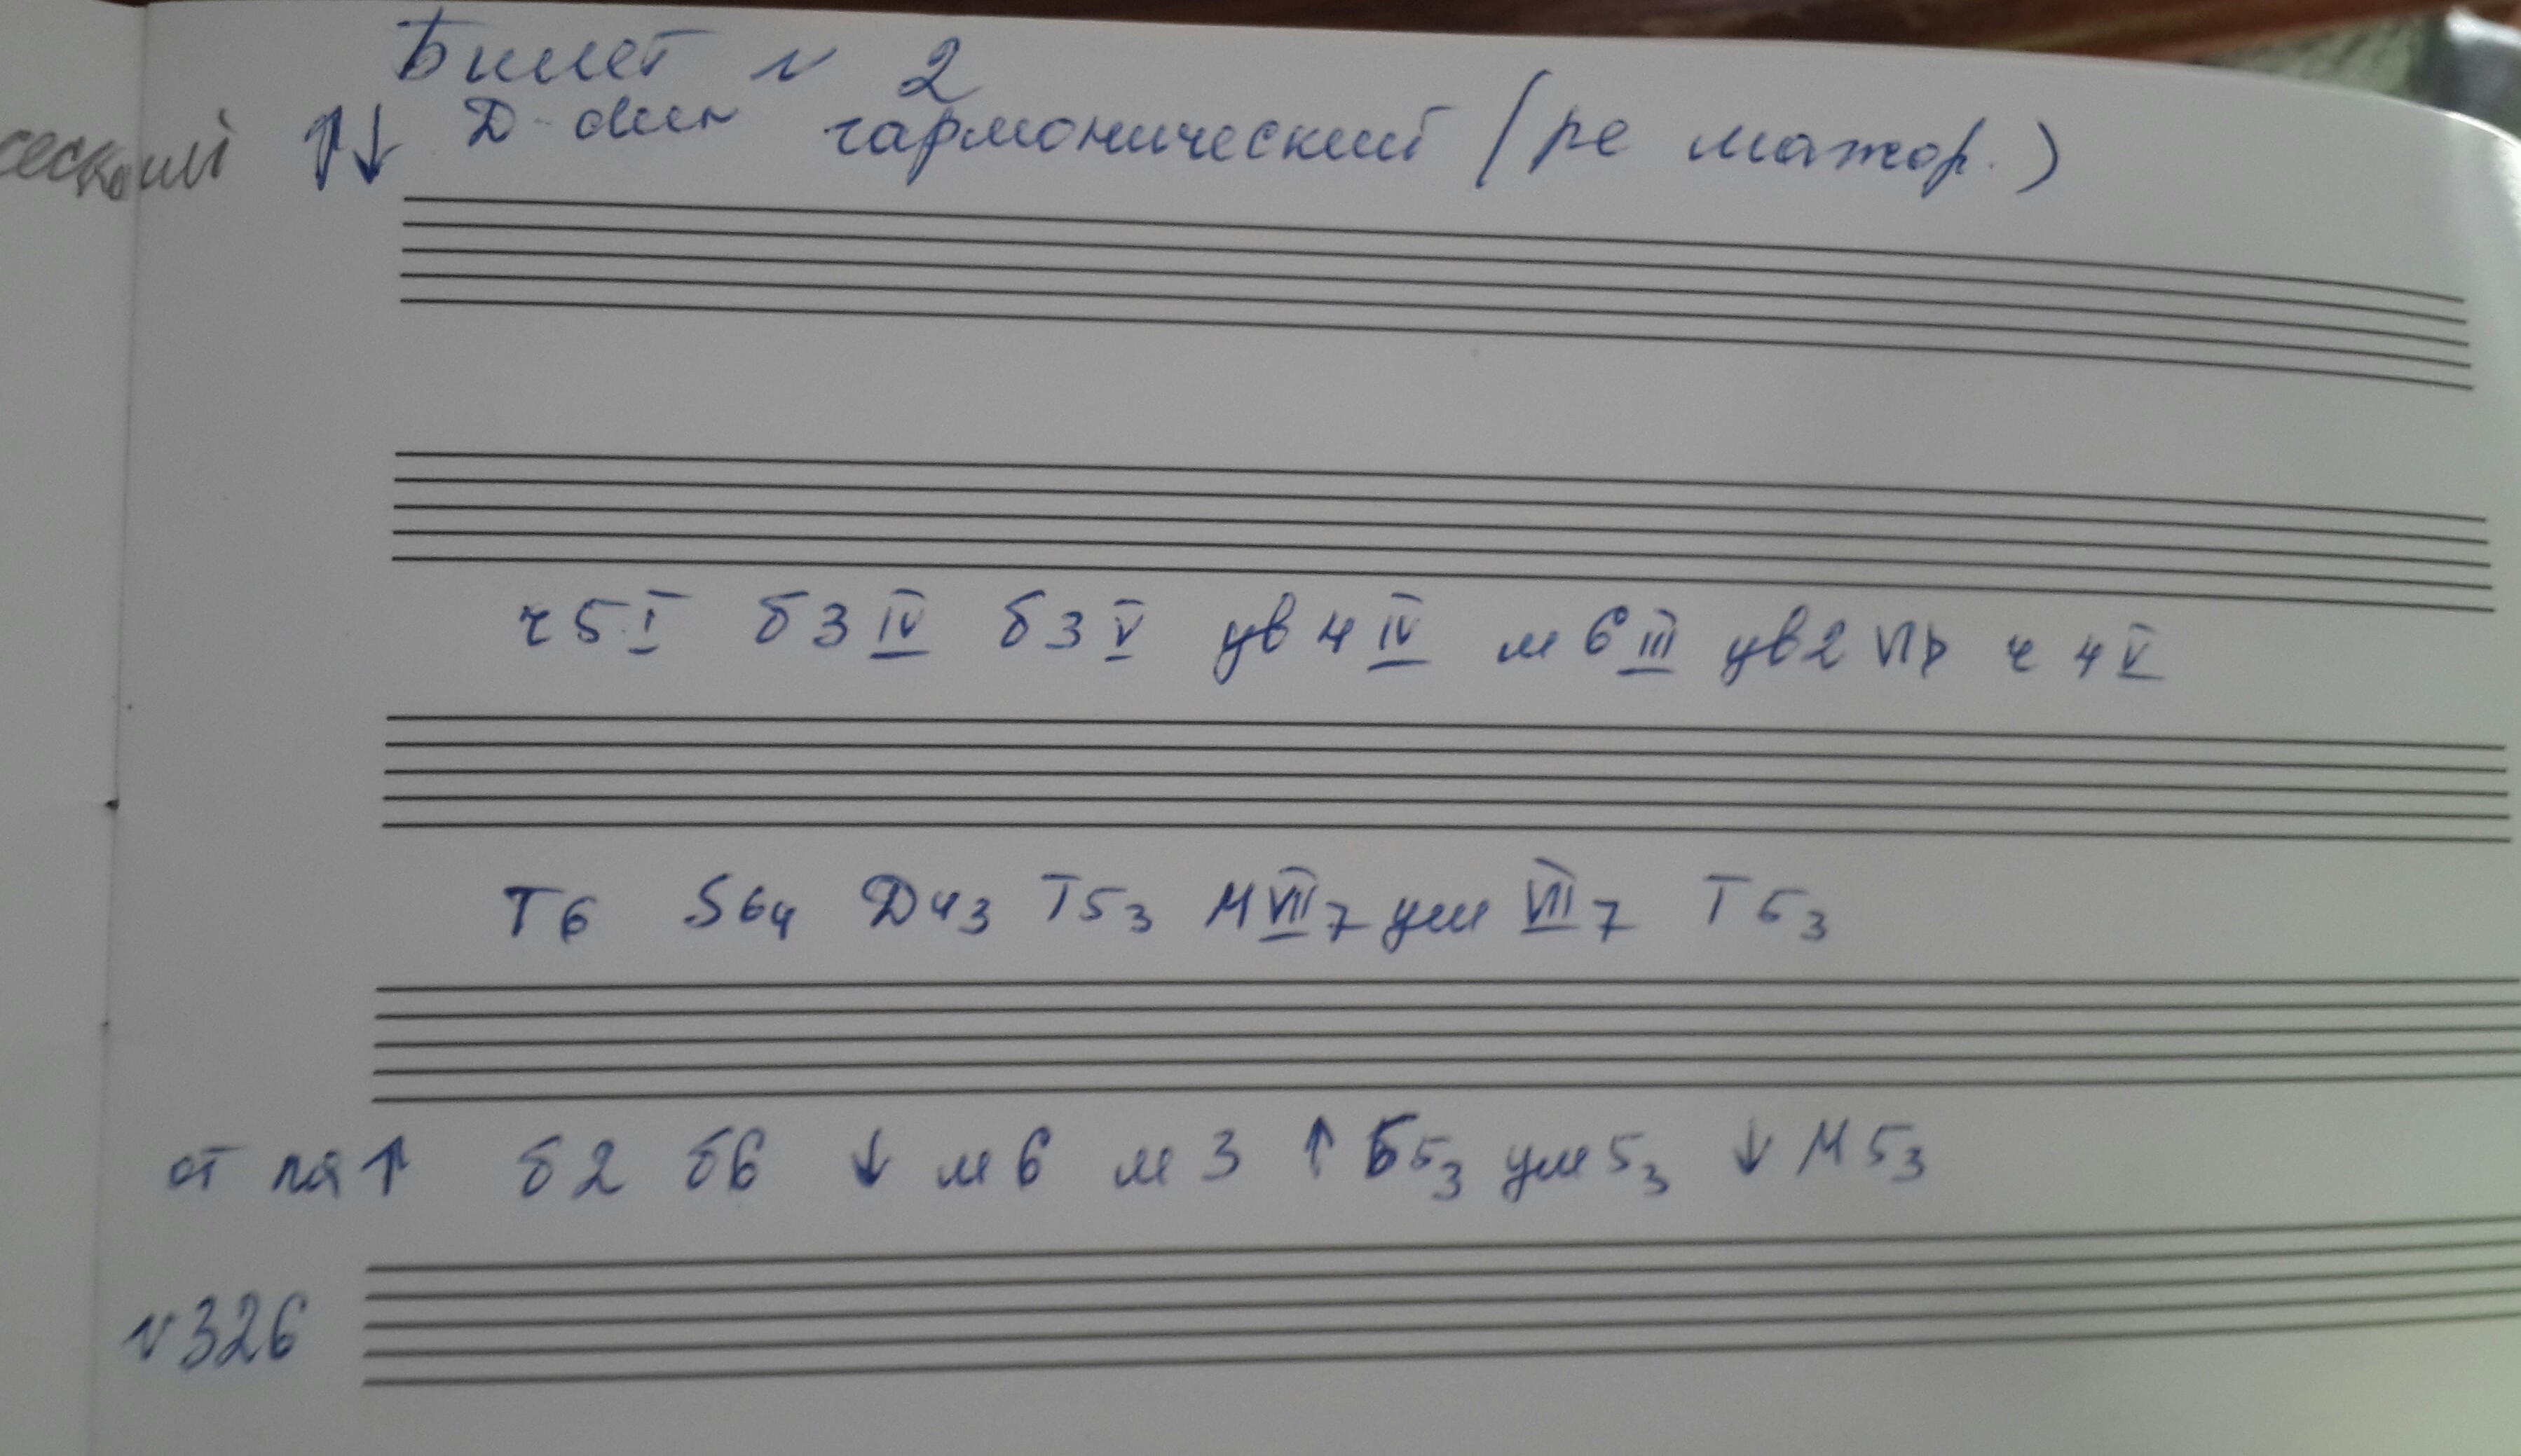 Билет N 2
ческий ↑↓ D-dur гармонический (ре мажор.)
ч5 I б3 IV б3 V ув4 IV м6 III ув2 VI♭ ч4 V
T6 S64 Д43 T53 МVII7 умVII7 T53
от ля ↑ б2 б6 ↓ м6 м3 ↑ Б53 ум53 ↓ М53
N326